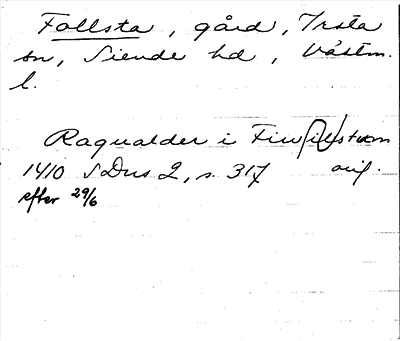 Fallsta, gård, Irsta
sn, Siende hd, Västm.
l.
Ragualder i
1410 SDns 2, s. 317 orig.
efter 29/6